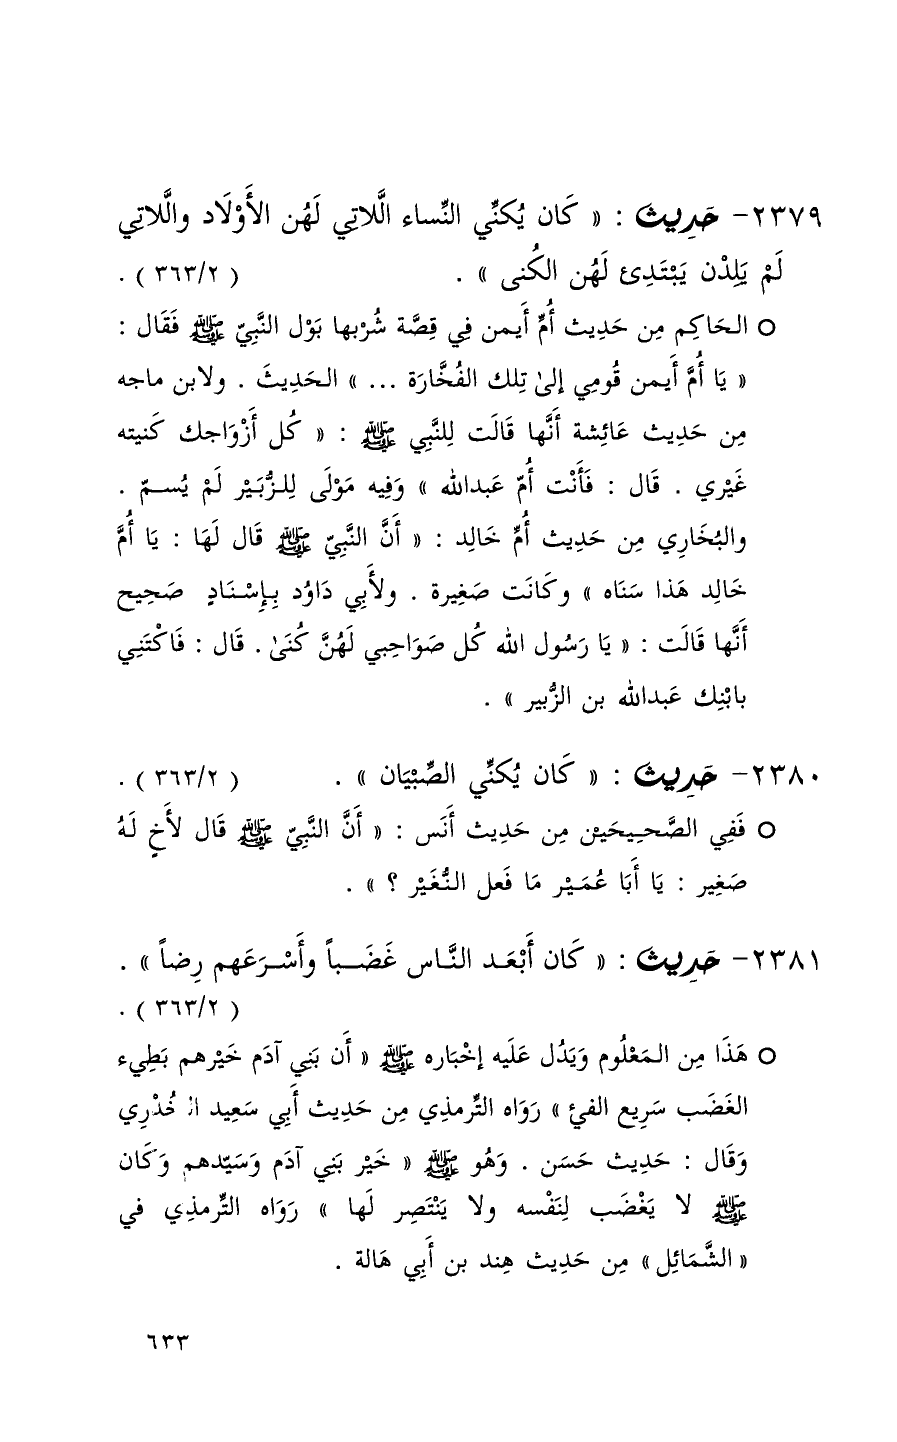 ٢٣٧٩- حَدِيث : « كَان يُكنِّي النِّساء الَّلاتِي لَهُن الأَوْلَاد والَّلاتِي
لَمْ يَلِدْن يَبْتَدِئ لَهُن الكُنى » . ( ٣٦٣/٢ ) .
○ الحَاكِم مِن حَدِيث أُمِّ أَيمن فِي قِصَّة شُرْبها بَوْل النَّبِيّ ﷺ فَقَال :
« يَا أُمَّ أَيمن قُومِي إلىٰ تِلك الفُخَّارَة ... » الحَدِيثَ . ولابن ماجه
مِن حَدِيث عَائِشة أَنَّها قَالَت لِلنَّبِي ﷺ : « كُل أَزْوَاجك كَنيته
غَيْري . قَال : فَأَنْت أُمّ عَبدالله » وَفِيه مَوْلَى لِلزُّبَيْر لَمْ يُسمّ .
والبُخَارِي مِن حَدِيث أُمِّ خَالِد : « أَنَّ النَّبِيّ ﷺ قَال لَهَا : يَا أُمَّ
خَالِد هَذا سَنَاه » وكَانَت صَغِيرة . ولأَبِي دَاوُد بِإِسْنَادٍ صَحِيح
أَنَّها قَالَت : « يَا رَسُول الله كُل صَوَاحِبي لَهُنَّ كُنَىٰ . قَال : فَاكْتَنِي
بابْنِك عَبدالله بن الزُّبير » .
٢٣٨٠- حَدِيث : « كَان يُكنِّي الصِّبْيَان » . ( ٣٦٣/٢ ) .
○ فَفِي الصَّحِيحَيْن مِن حَدِيث أَنَس : « أَنَّ النَّبِيّ ﷺ قَال لأَخٍ لَهُ
صَغِير : يَا أَبَا عُمَيْر مَا فَعل النُّغَيْر ؟ » .
٢٣٨١- حَدِيث : « كَان أَبْعَد النَّاس غَضَباً وأَسْرَعَهم رِضاً » .
( ٣٦٣/٢ ) .
○ هَذَا مِن المَعْلُوم وَيَدُل عَلَيه إخْبَاره ﷺ « أَن بَنِي آدَم خَيْرهم بَطِيء
الغَضَب سَرِيع الفيْ » رَوَاه التِّرمذِي مِن حَدِيث أَبِي سَعِيد الخُدْرِي
وَقَال : حَدِيث حَسَن . وَهُو ﷺ « خَيْر بَنِي آدَم وَسَيّدهم وَكَان
ﷺ لا يَغْضَب لِنَفْسه ولا يَنْتَصِر لَها » رَوَاه التِّرمذِي في
« الشَّمَائِل » مِن حَدِيث هِند بن أَبِي هَالة .
٦٣٣